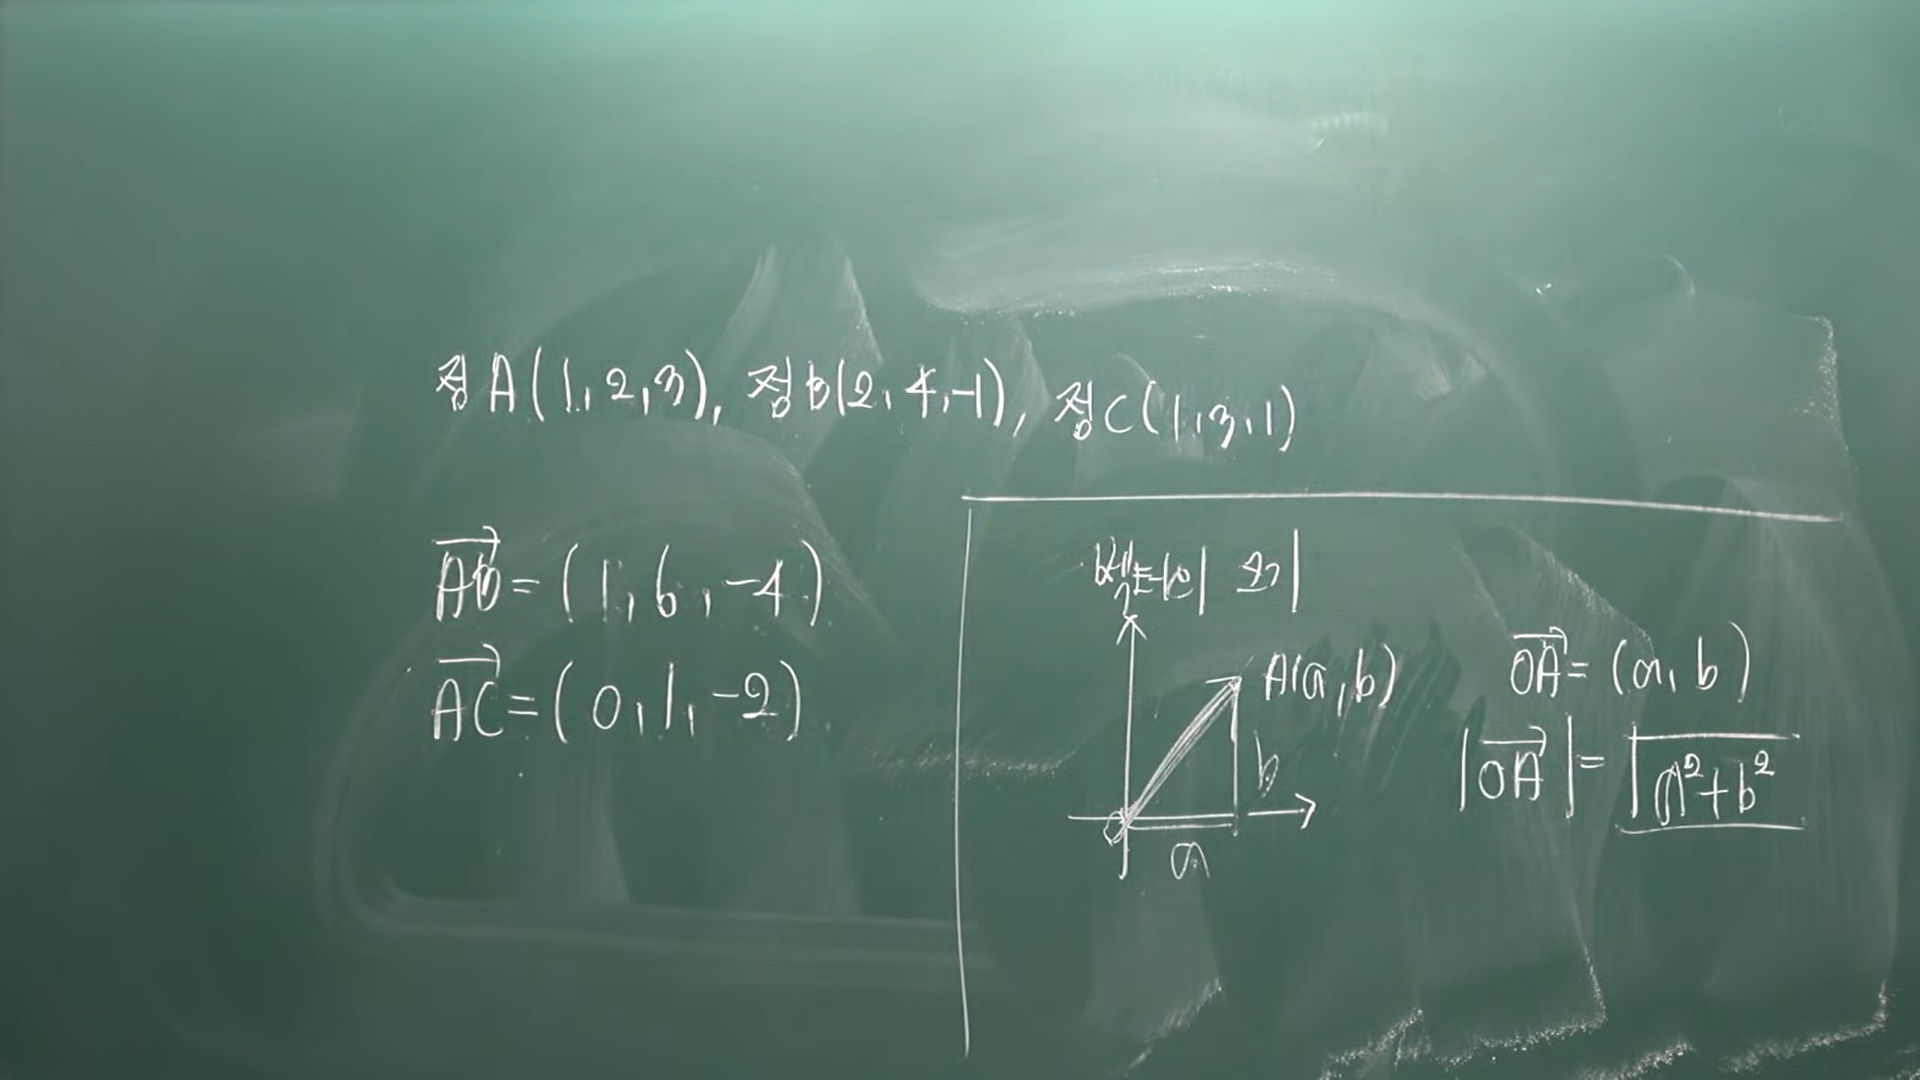 점A(1,2,3), 점B(2,4,-1), 점C(1,3,1)
AB=(1,6,-4)
AC=(0,1,-2)
벡터의 크기
A(a,b)
b
O
a
OA=(a,b)
|OA|=√a²+b²